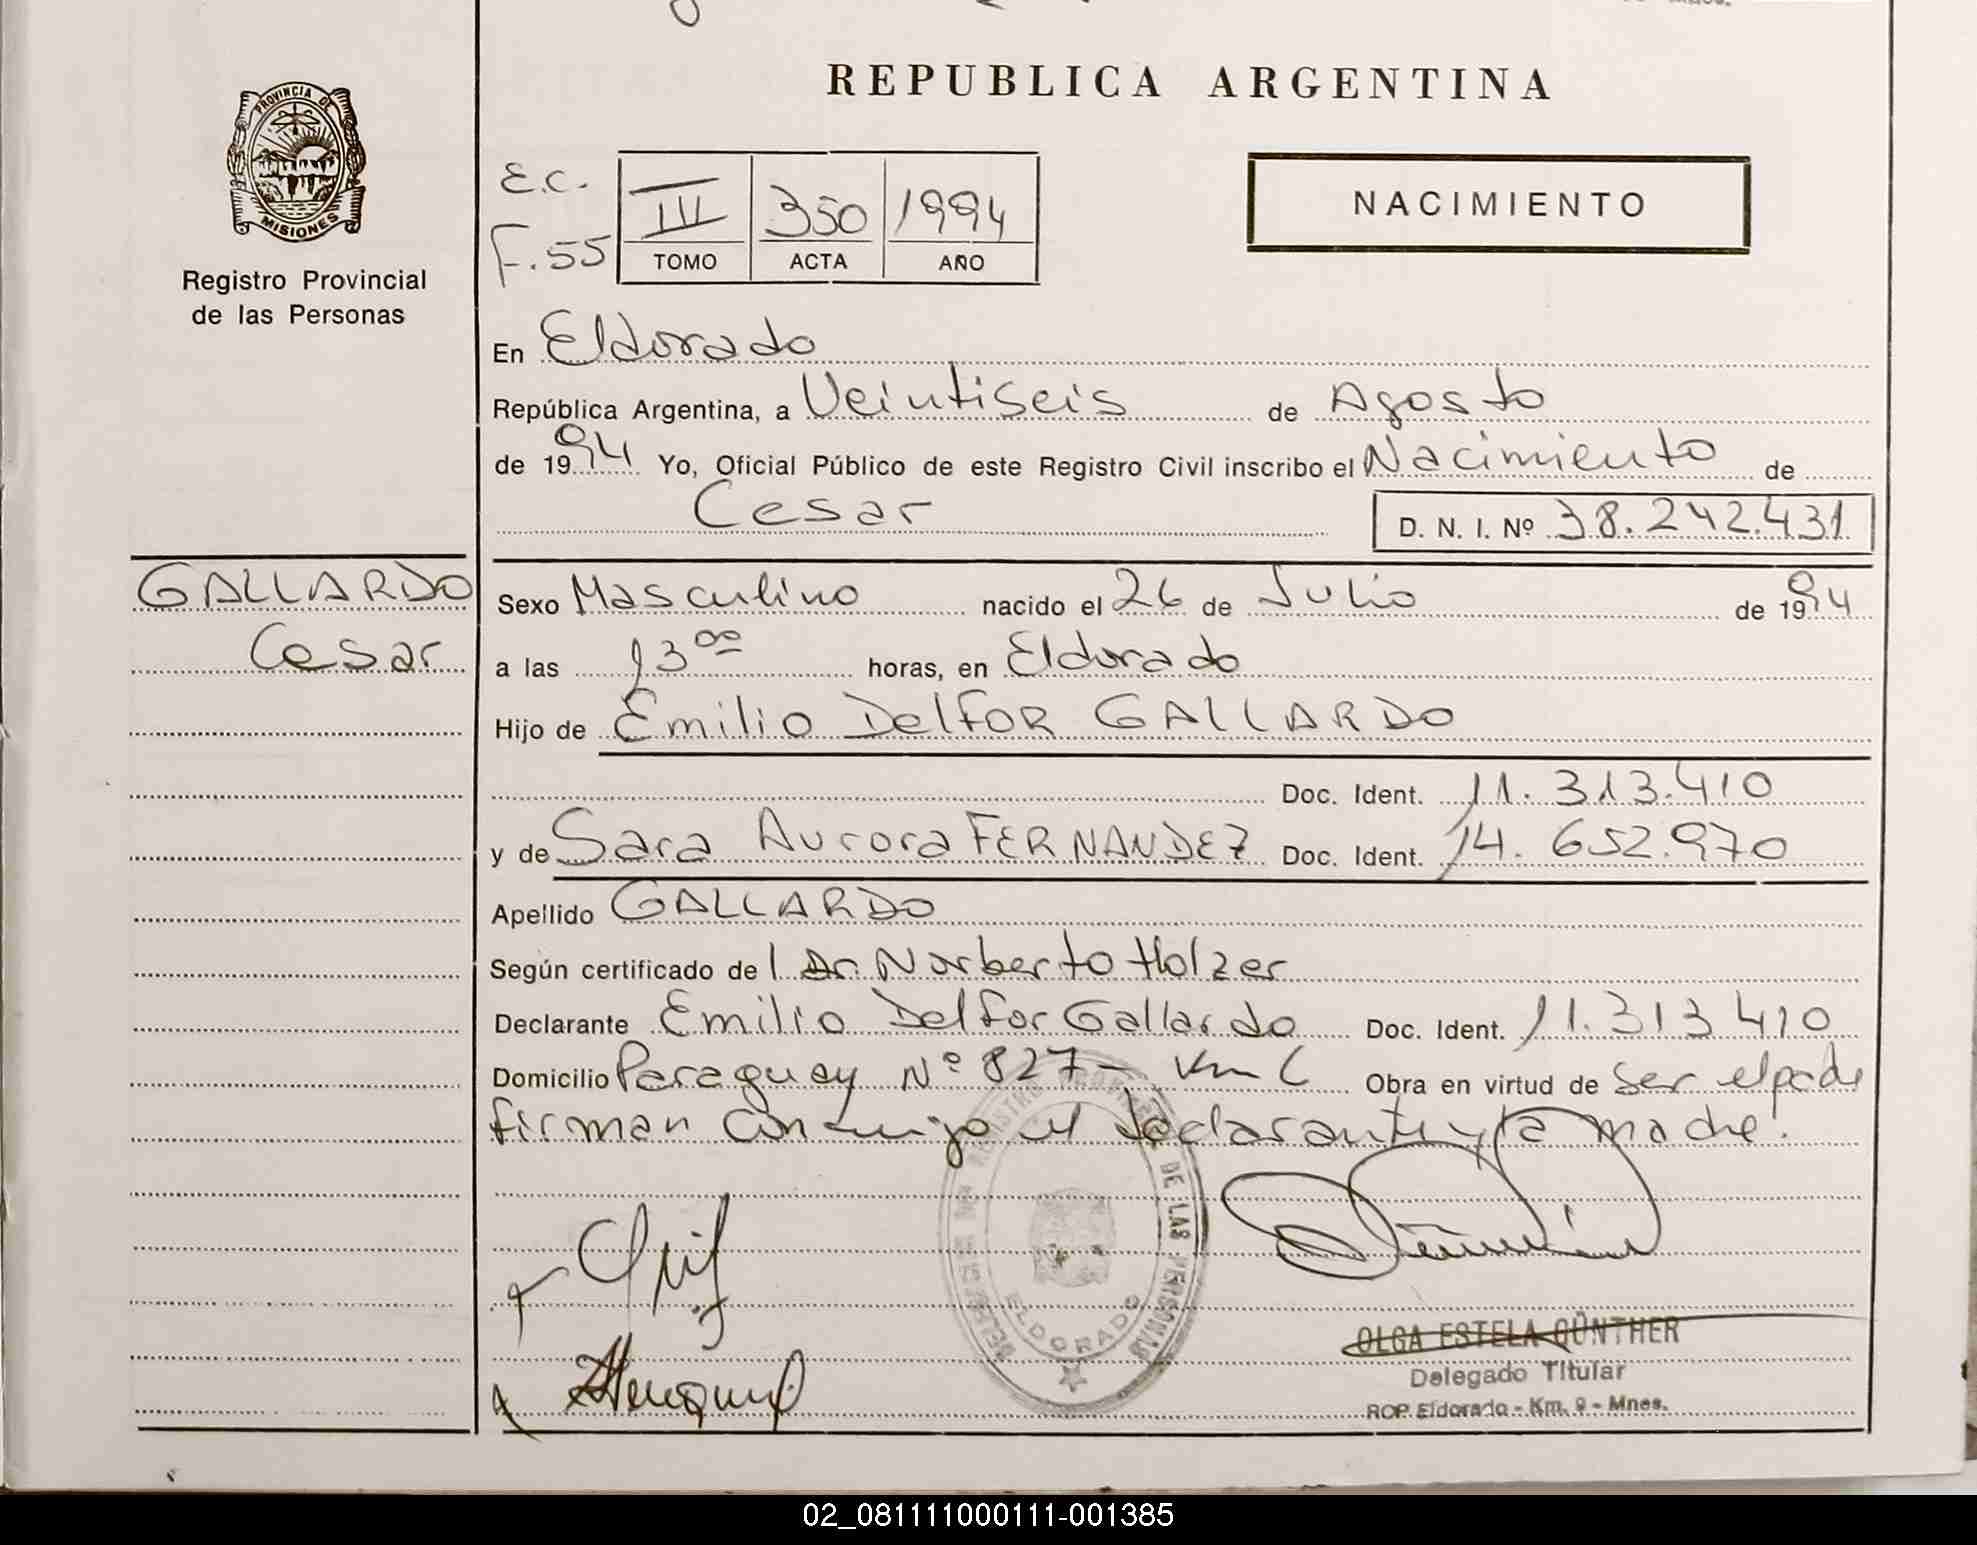 REPUBLICA ARGENTINA
PROVINCIA DE
MISIONES
Registro Provincial
de las Personas
E.C.
F.55
III 350 1994
TOMO ACTA AÑO
NACIMIENTO
En Eldorado
República Argentina, a Veintiseis de Agosto
de 1994 Yo, Oficial Público de este Registro Civil inscribo el Nacimiento de
Cesar D. N. I. Nº 38.242.431
GALLARDO
Cesar
Sexo Masculino nacido el 26 de Julio de 1994
a las 13 oo horas, en Eldorado
Hijo de Emilio Delfor GALLARDO
Doc. Ident. 11.313.410
y de Sara Aurora FERNANDEZ Doc. Ident. 14.652.970
Apellido GALLARDO
Según certificado de l Dr. Norberto Holzer
Declarante Emilio Delfor Gallardo Doc. Ident. 11.313 410
Domicilio Paraguay Nº 827- Km Obra en virtud de ser el padre
firman conmigo el declarante y la madre.
DE LAS PERSONAS
ELDORADO
OLGA ESTELA GÜNTHER
Delegado Titular
RCP. Eldorado - Km. 9 - Mnes.
02_081111000111-001385